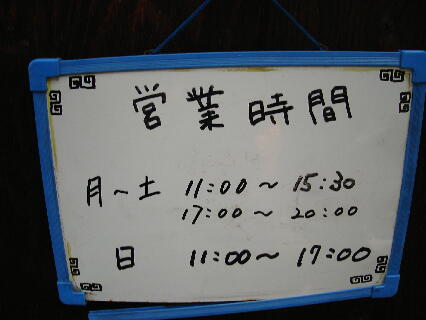 営業時間
月～土 11:00～15:30
17:00～20:00
日 11:00～17:00